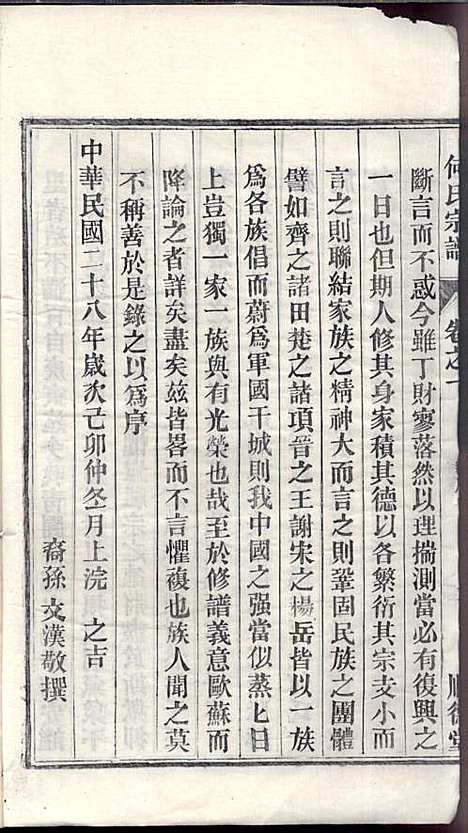 何氏宗譜 卷之一 順德堂
斷言而不惑今雖丁財寥落然以理揣測當必有復興之
一日也但期人修其身家積其德以各繁衍其宗支小而
言之則聯結家族之精神大而言之則鞏固民族之團體
譬如齊之諸田楚之諸項晉之王謝宋之楊岳皆以一族
爲各族倡而蔚爲軍國干城則我中國之强當似蒸匕日
上豈獨一家一族與有光榮也哉至於修譜義意歐蘇而
降論之者詳矣盡矣茲皆畧而不言懼複也族人聞之莫
不稱善於是錄之以爲序
中華民國二十八年歲次己卯仲冬月上浣 之吉
裔孫 文漢敬撰